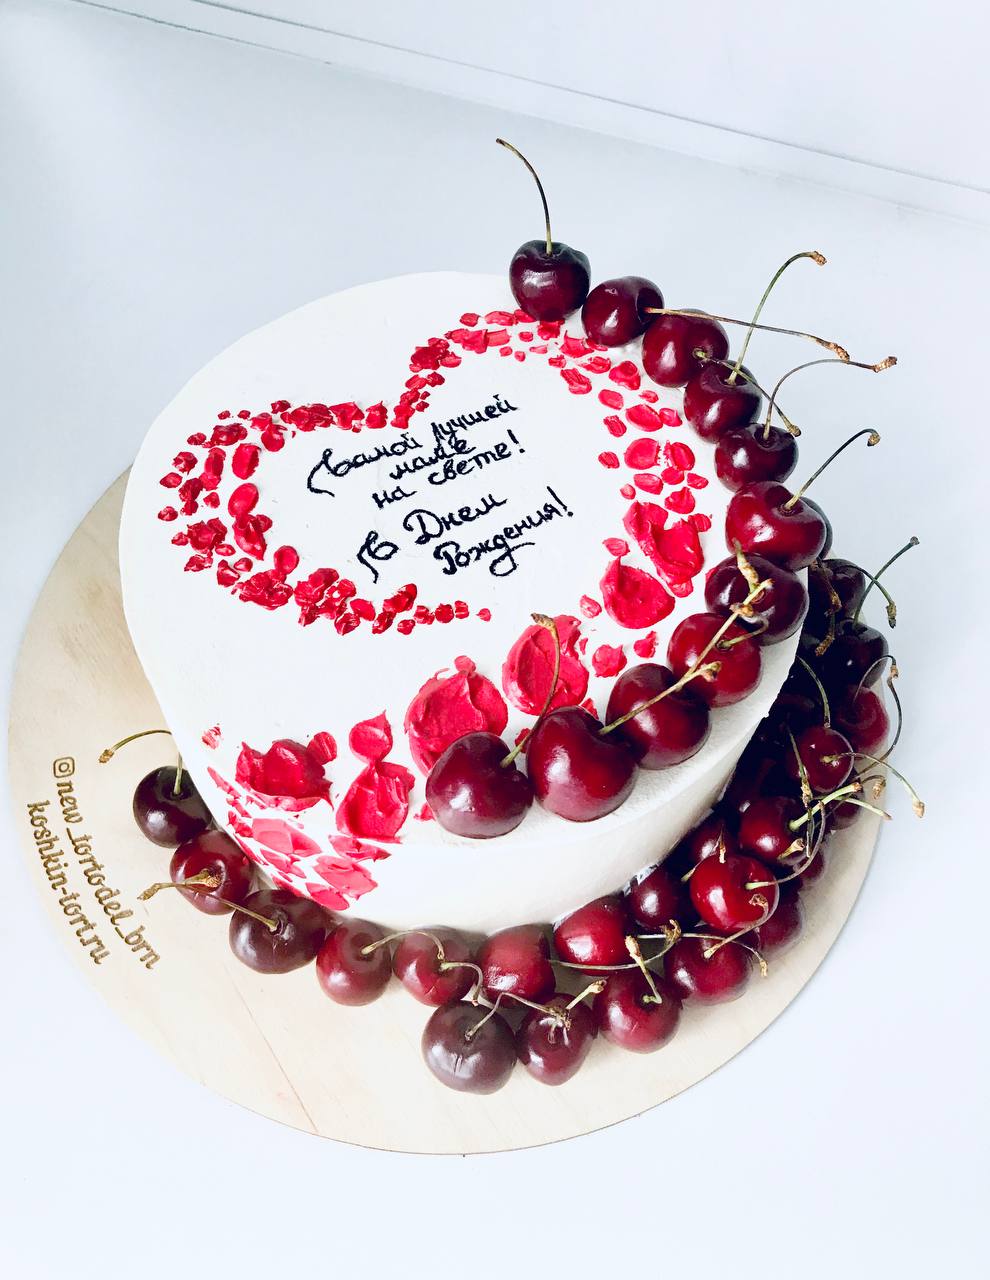 Самой лучшей
маме
на свете!
С Днем
Рождения!
@new_tortodel_brn
koshkin-tort.ru